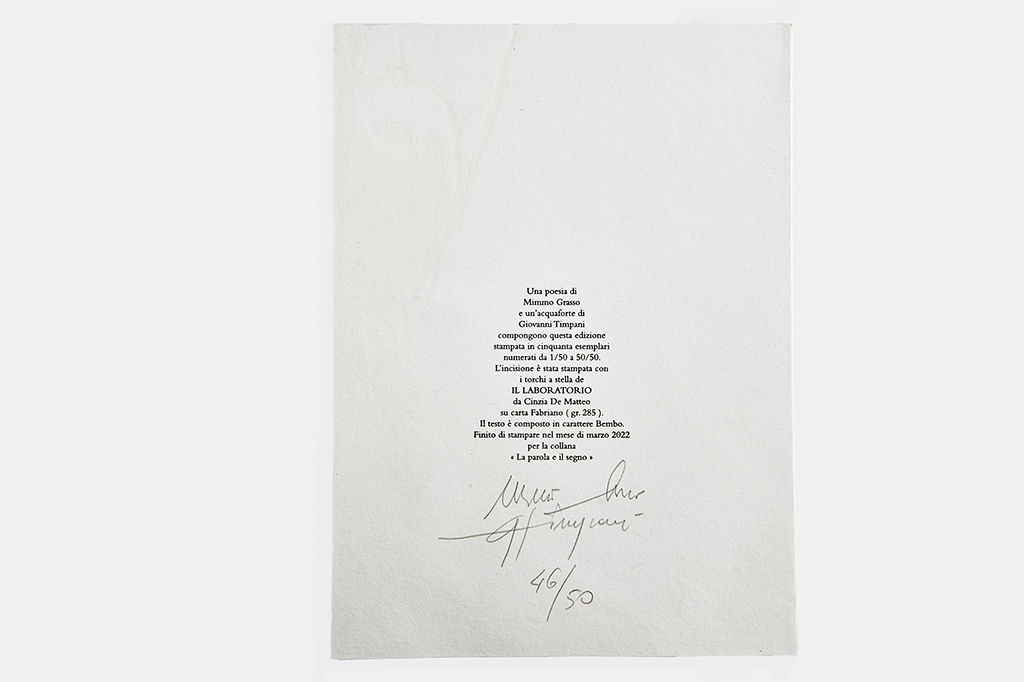 Una poesia di
Mimmo Grasso
e un'acquaforte di
Giovanni Timpani
compongono questa edizione
stampata in cinquanta esemplari
numerati da 1/50 a 50/50.
L'incisione è stata stampata con
i torchi a stella de
IL LABORATORIO
da Cinzia De Matteo
su carta Fabriano ( gr. 285 ).
Il testo è composto in carattere Bembo.
Finito di stampare nel mese di marzo 2022
per la collana
« La parola e il segno »
46/50